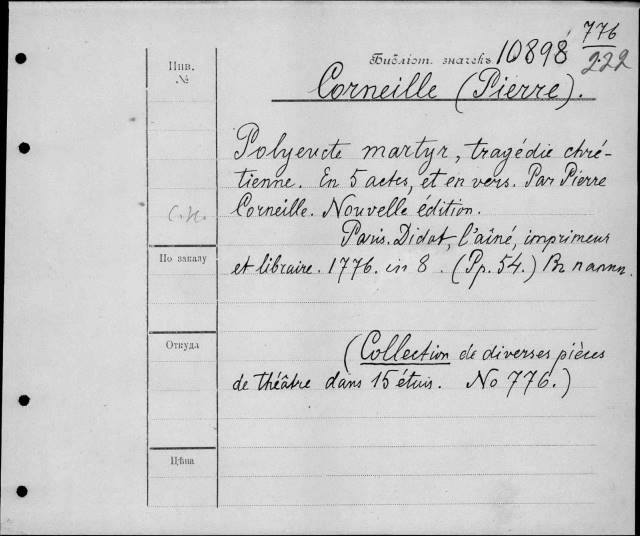 Инв.
№
Библіот. значекъ 10898 776
222
Corneille (Pierre).
Polyeucte martyr, tragédie chré-
tienne. En 5 actes, et en vers. Par Pierre
Corneille. Nouvelle édition.
Paris. Didot, l'aîné, imprimeur
По заказу
et libraire. 1776. in 8. (Pp. 54.) Въ папкѣ.
Откуда
(Collection de diverses pièces
de théâtre dans 15 étuis. No 776.)
Цѣна